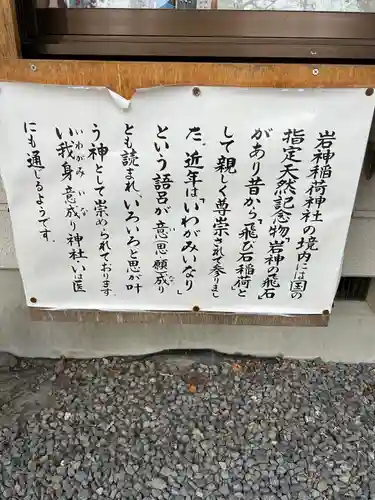 岩神稲荷神社の境内には国の
指定天然記念物「岩神の飛石」
があり昔から「飛び石稲荷」と
して親しく尊崇されて参りまし
た。近年は「いわがみいなり」
という語呂が意思願成り
とも読まれ、いろいろと思が叶
う神として崇められております。
いわがみ いな
い我身意成り神社いは医
にも通じるようです。